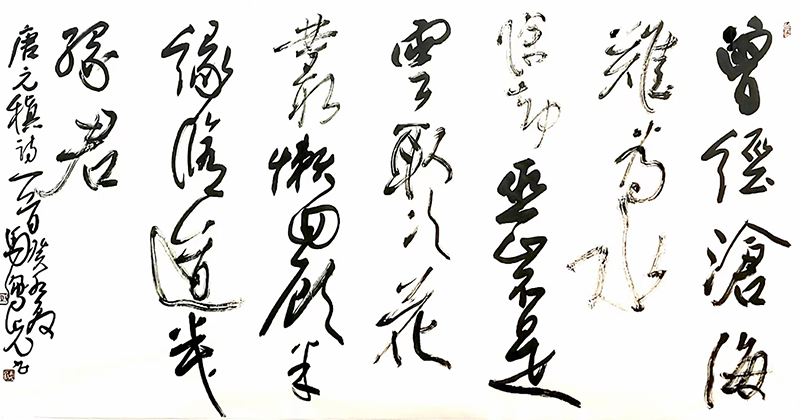 曾經滄海
難為水
除却巫山不是
雲取次花
叢懶回顧半
緣修道半
緣君
唐元稹詩一首癸